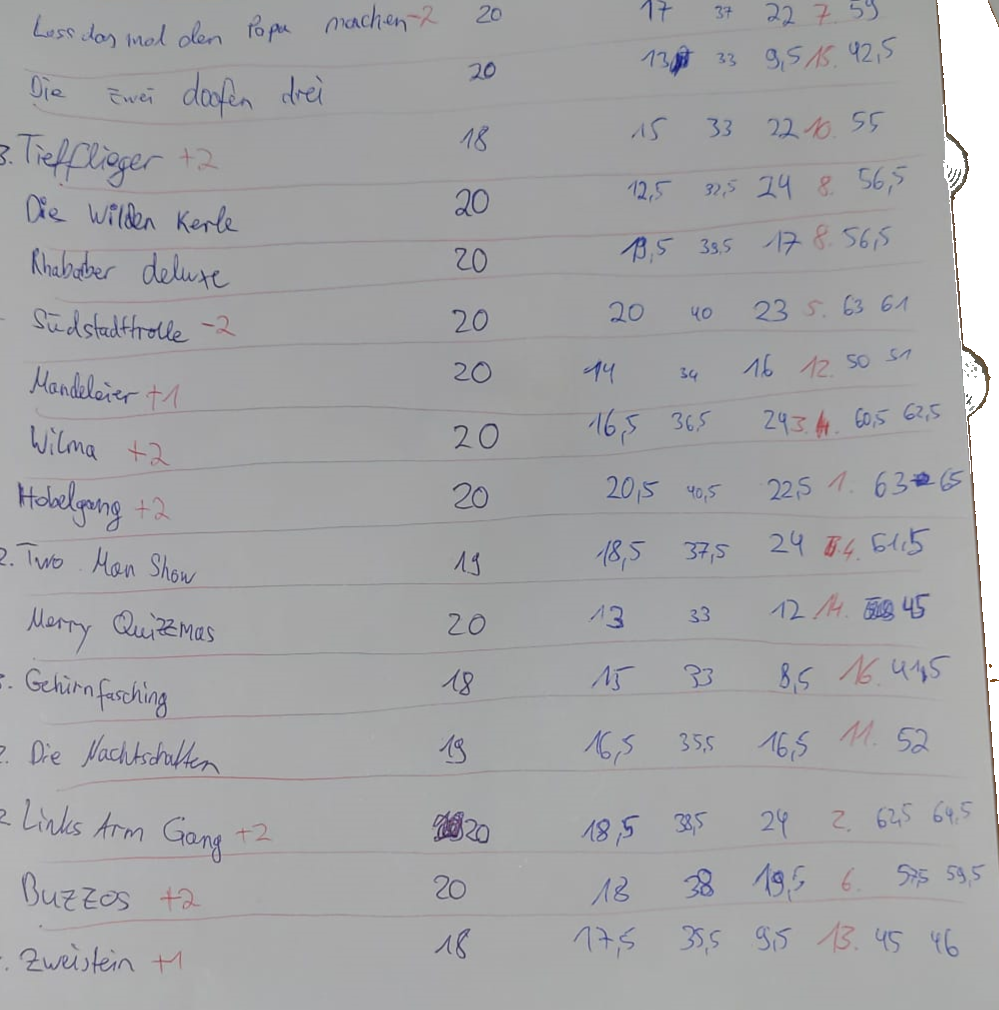 Lass das mal den Papa machen -2 20 17 37 22 7. 59
Die zwei doofen drei 20 13 33 9,5 15. 42,5
3. Tiefflieger +2 18 15 33 22 10. 55
Die Wilden Kerle 20 12,5 32,5 24 8. 56,5
Rhabarber deluxe 20 19,5 39,5 17 8. 56,5
Südstadttrolle -2 20 20 40 23 5. 63 61
Mandeleier +1 20 14 34 16 12. 50 51
Wilma +2 20 16,5 36,5 24 3. 60,5 62,5
Hobelgang +2 20 20,5 40,5 22,5 1. 63 65
2. Two Man Show 19 18,5 37,5 24 4. 61,5
Merry Quizzmas 20 13 33 12 14. 45
3. Gehirnfasching 18 15 33 8,5 16. 41,5
2. Die Nachtschatten 19 16,5 35,5 16,5 11. 52
2 Links Arm Gang +2 20 18,5 38,5 24 2. 62,5 64,5
Buzzos +2 20 18 38 19,5 6. 57,5 59,5
Zweistein +1 18 17,5 35,5 9,5 13. 45 46